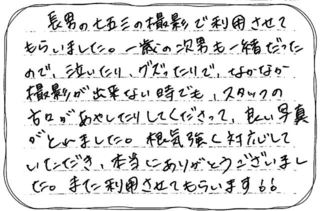 長男の七五三の撮影で利用させて
もらいました。一歳の次男も一緒だった
ので、泣いたり、グズったりで、なかなか
撮影が出来ない時でも、スタッフの
方々があやしたりしてくださって、良い写真
がとれました。根気強く対応して
いただき、本当にありがとうございまし
た。また利用させてもらいます。